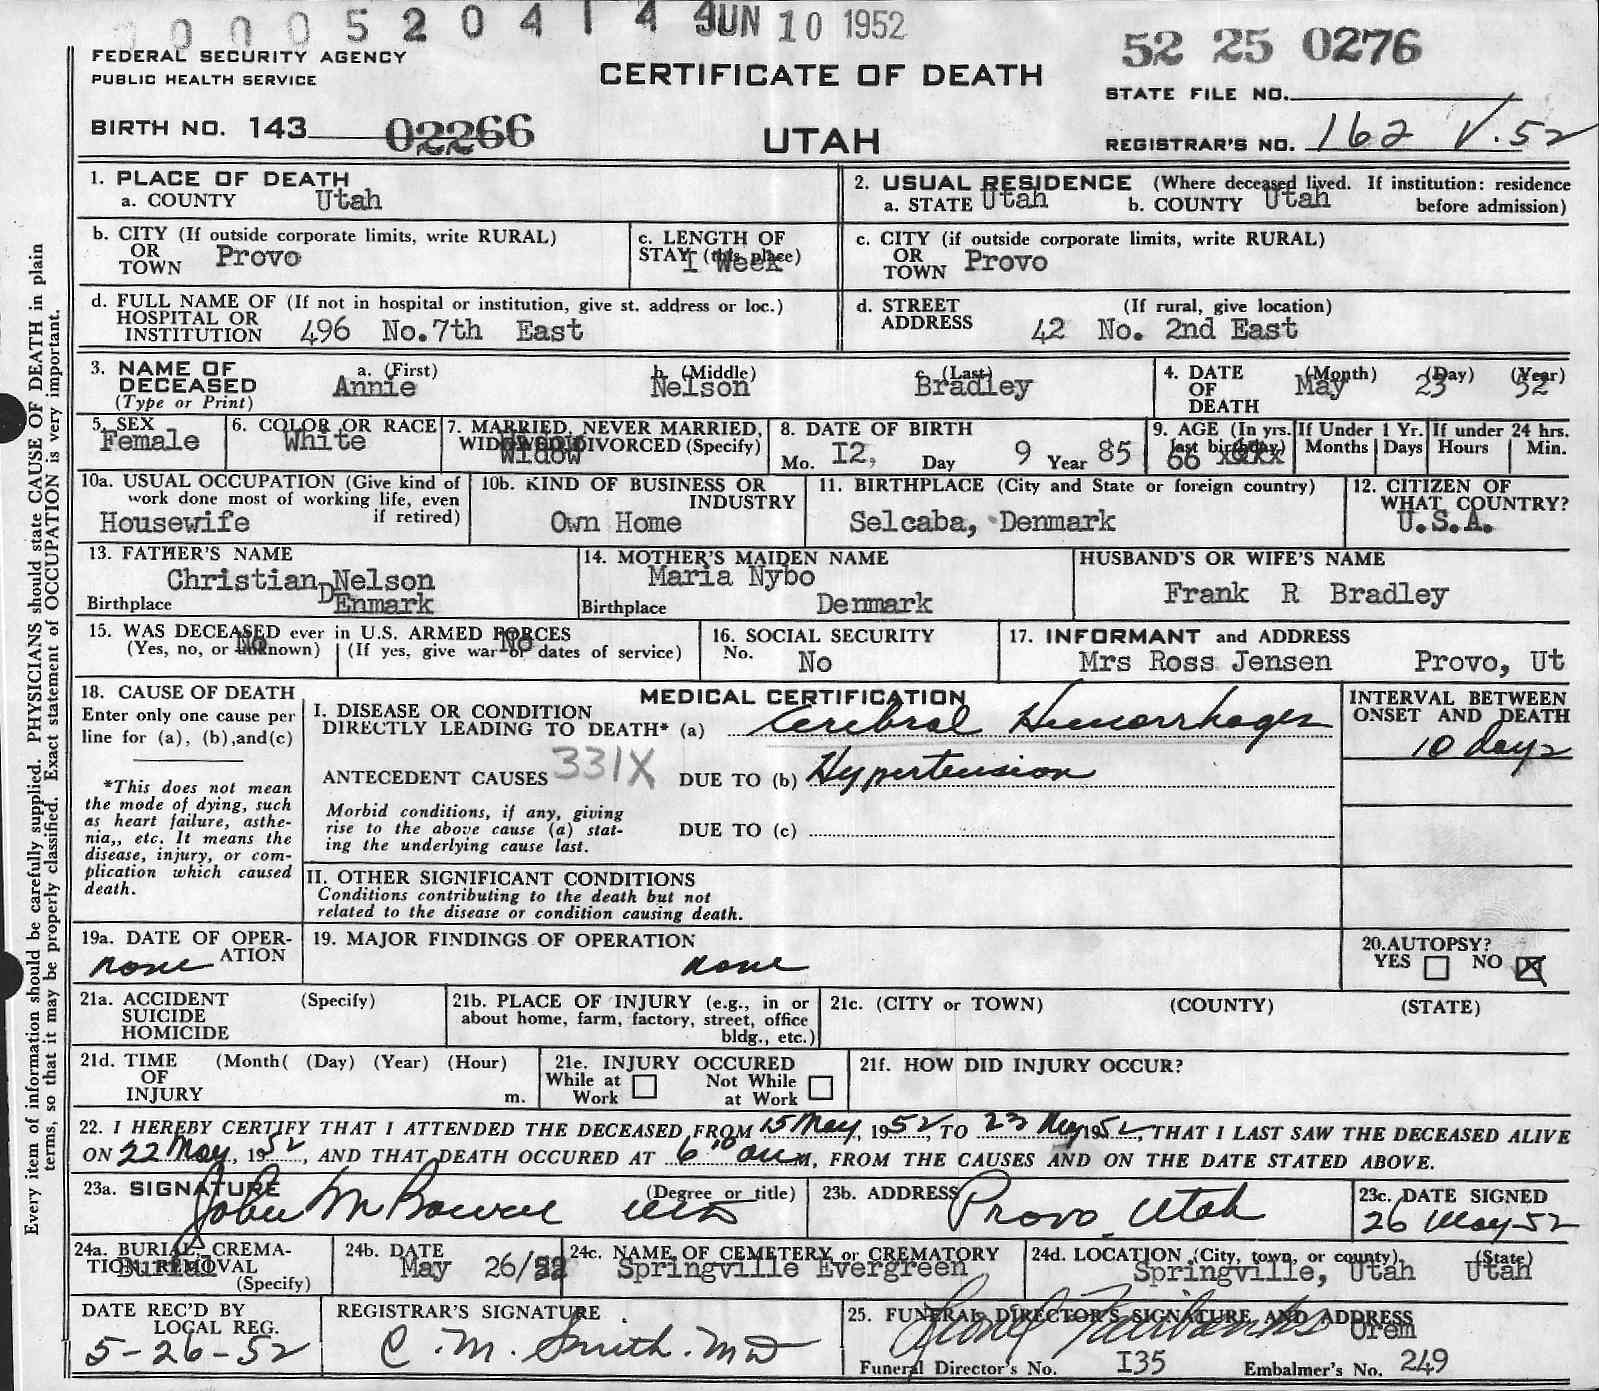 0 0 0 0 5 2 0 4 1 4 JUN 10 1952
52 25 0276
FEDERAL SECURITY AGENCY
PUBLIC HEALTH SERVICE
CERTIFICATE OF DEATH
STATE FILE NO.
BIRTH NO. 143 02266
UTAH
REGISTRAR'S NO. 162 V. 52
1. PLACE OF DEATH
a. COUNTY Utah
2. USUAL RESIDENCE (Where deceased lived. If institution: residence
a. STATE Utah b. COUNTY Utah before admission)
b. CITY (If outside corporate limits, write RURAL)
OR
TOWN Provo
c. LENGTH OF
STAY (this place)
I Week
c. CITY (if outside corporate limits, write RURAL)
OR
TOWN Provo
d. FULL NAME OF (If not in hospital or institution, give st. address or loc.)
HOSPITAL OR
INSTITUTION 496 No.7th East
d. STREET (If rural, give location)
ADDRESS 42 No. 2nd East
3. NAME OF
DECEASED
(Type or Print)
a. (First)
Annie
b. (Middle)
Nelson
c. (Last)
Bradley
4. DATE
OF
DEATH
(Month) (Day) (Year)
May 23 52
5. SEX
Female
6. COLOR OR RACE
White
7. MARRIED, NEVER MARRIED,
WIDOWED, DIVORCED (Specify)
Widow
8. DATE OF BIRTH
Mo. I2, Day 9 Year 85
9. AGE (In yrs.
last birthday)
66
If Under 1 Yr.
Months Days
If under 24 hrs.
Hours Min.
10a. USUAL OCCUPATION (Give kind of
work done most of working life, even
if retired)
Housewife
10b. KIND OF BUSINESS OR
INDUSTRY
Own Home
11. BIRTHPLACE (City and State or foreign country)
Selcaba, Denmark
12. CITIZEN OF
WHAT COUNTRY?
U.S.A.
13. FATHER'S NAME
Christian Nelson
Birthplace DEnmark
14. MOTHER'S MAIDEN NAME
Maria Nybo
Birthplace Denmark
HUSBAND'S OR WIFE'S NAME
Frank R Bradley
15. WAS DECEASED ever in U.S. ARMED FORCES
(Yes, no, or unknown) (If yes, give war or dates of service)
No No
16. SOCIAL SECURITY
No. No
17. INFORMANT and ADDRESS
Mrs Ross Jensen Provo, Ut
18. CAUSE OF DEATH
Enter only one cause per
line for (a), (b),and(c)
*This does not mean
the mode of dying, such
as heart failure, asthe-
nia,, etc. It means the
disease, injury, or com-
plication which caused
death.
MEDICAL CERTIFICATION
I. DISEASE OR CONDITION
DIRECTLY LEADING TO DEATH* (a) Cerebral Hemorrhages
ANTECEDENT CAUSES 331X DUE TO (b) Hypertension
Morbid conditions, if any, giving
rise to the above cause (a) stat-
ing the underlying cause last.
DUE TO (c)
INTERVAL BETWEEN
ONSET AND DEATH
10 days
II. OTHER SIGNIFICANT CONDITIONS
Conditions contributing to the death but not
related to the disease or condition causing death.
19a. DATE OF OPER-
ATION
none
19. MAJOR FINDINGS OF OPERATION
none
20.AUTOPSY?
YES NO
21a. ACCIDENT (Specify)
SUICIDE
HOMICIDE
21b. PLACE OF INJURY (e.g., in or
about home, farm, factory, street, office
bldg., etc.)
21c. (CITY or TOWN) (COUNTY) (STATE)
21d. TIME (Month( (Day) (Year) (Hour)
OF
INJURY m.
21e. INJURY OCCURED
While at Work
Not While at Work
21f. HOW DID INJURY OCCUR?
22. I HEREBY CERTIFY THAT I ATTENDED THE DECEASED FROM 15 May, 1952, TO 23 May 1952, THAT I LAST SAW THE DECEASED ALIVE
ON 22 May, 1952, AND THAT DEATH OCCURED AT 6:00 a.m., FROM THE CAUSES AND ON THE DATE STATED ABOVE.
23a. SIGNATURE (Degree or title)
John M Bowen MD
23b. ADDRESS
Provo, Utah
23c. DATE SIGNED
26 May 52
24a. BURIAL, CREMA-
TION, REMOVAL
(Specify)
Burial
24b. DATE
May 26/52
24c. NAME OF CEMETERY or CREMATORY
Springville Evergreen
24d. LOCATION (City, town, or county) (State)
Springville, Utah Utah
DATE REC'D BY
LOCAL REG.
5-26-52
REGISTRAR'S SIGNATURE
C. M. Smith. MD
25. FUNERAL DIRECTOR'S SIGNATURE AND ADDRESS
Fairbanks Orem
Funeral Director's No. I35 Embalmer's No. 249
Every item of information should be carefully supplied. PHYSICIANS should state CAUSE OF DEATH in plain
terms, so that it may be properly classified. Exact statement of OCCUPATION is very important.